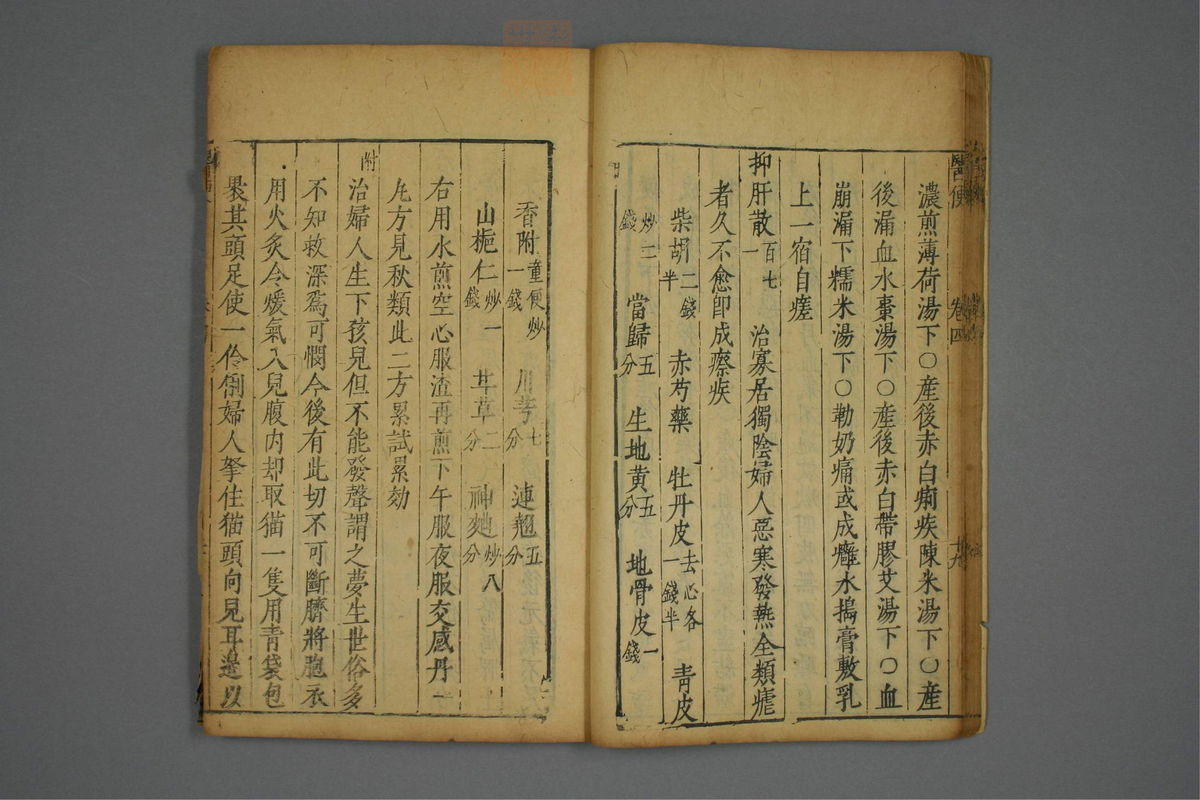 醫便 卷四 十九
濃煎薄荷湯下〇產後赤白痢疾陳米湯下〇產
後漏血水棗湯下〇產後赤白帶膠艾湯下〇血
崩漏下糯米湯下〇勒奶痛或成癰水搗膏敷乳
上一宿自瘥
抑肝散百七一 治寡居獨陰婦人惡寒發熱全類瘧
者久不愈卽成瘵疾
柴胡二錢半 赤芍藥 牡丹皮去心各一錢半 青皮
炒二錢 當歸五分 生地黄五分 地骨皮一錢
香附童便炒一錢 川芎七分 連翹五分
山梔仁炒一錢 甘草二分 神麴炒八分
右用水煎空心服渣再煎下午服夜服交感丹一
丸方見秋類此二方累試累効
附治婦人生下孩兒但不能發聲謂之夢生世俗多
不知救深爲可憫今後有此切不可斷臍將胞衣
用火炙令煖氣入兒腹内却取猫一隻用青袋包
裹其頭足使一伶俐婦人拏住猫頭向兒耳邊以